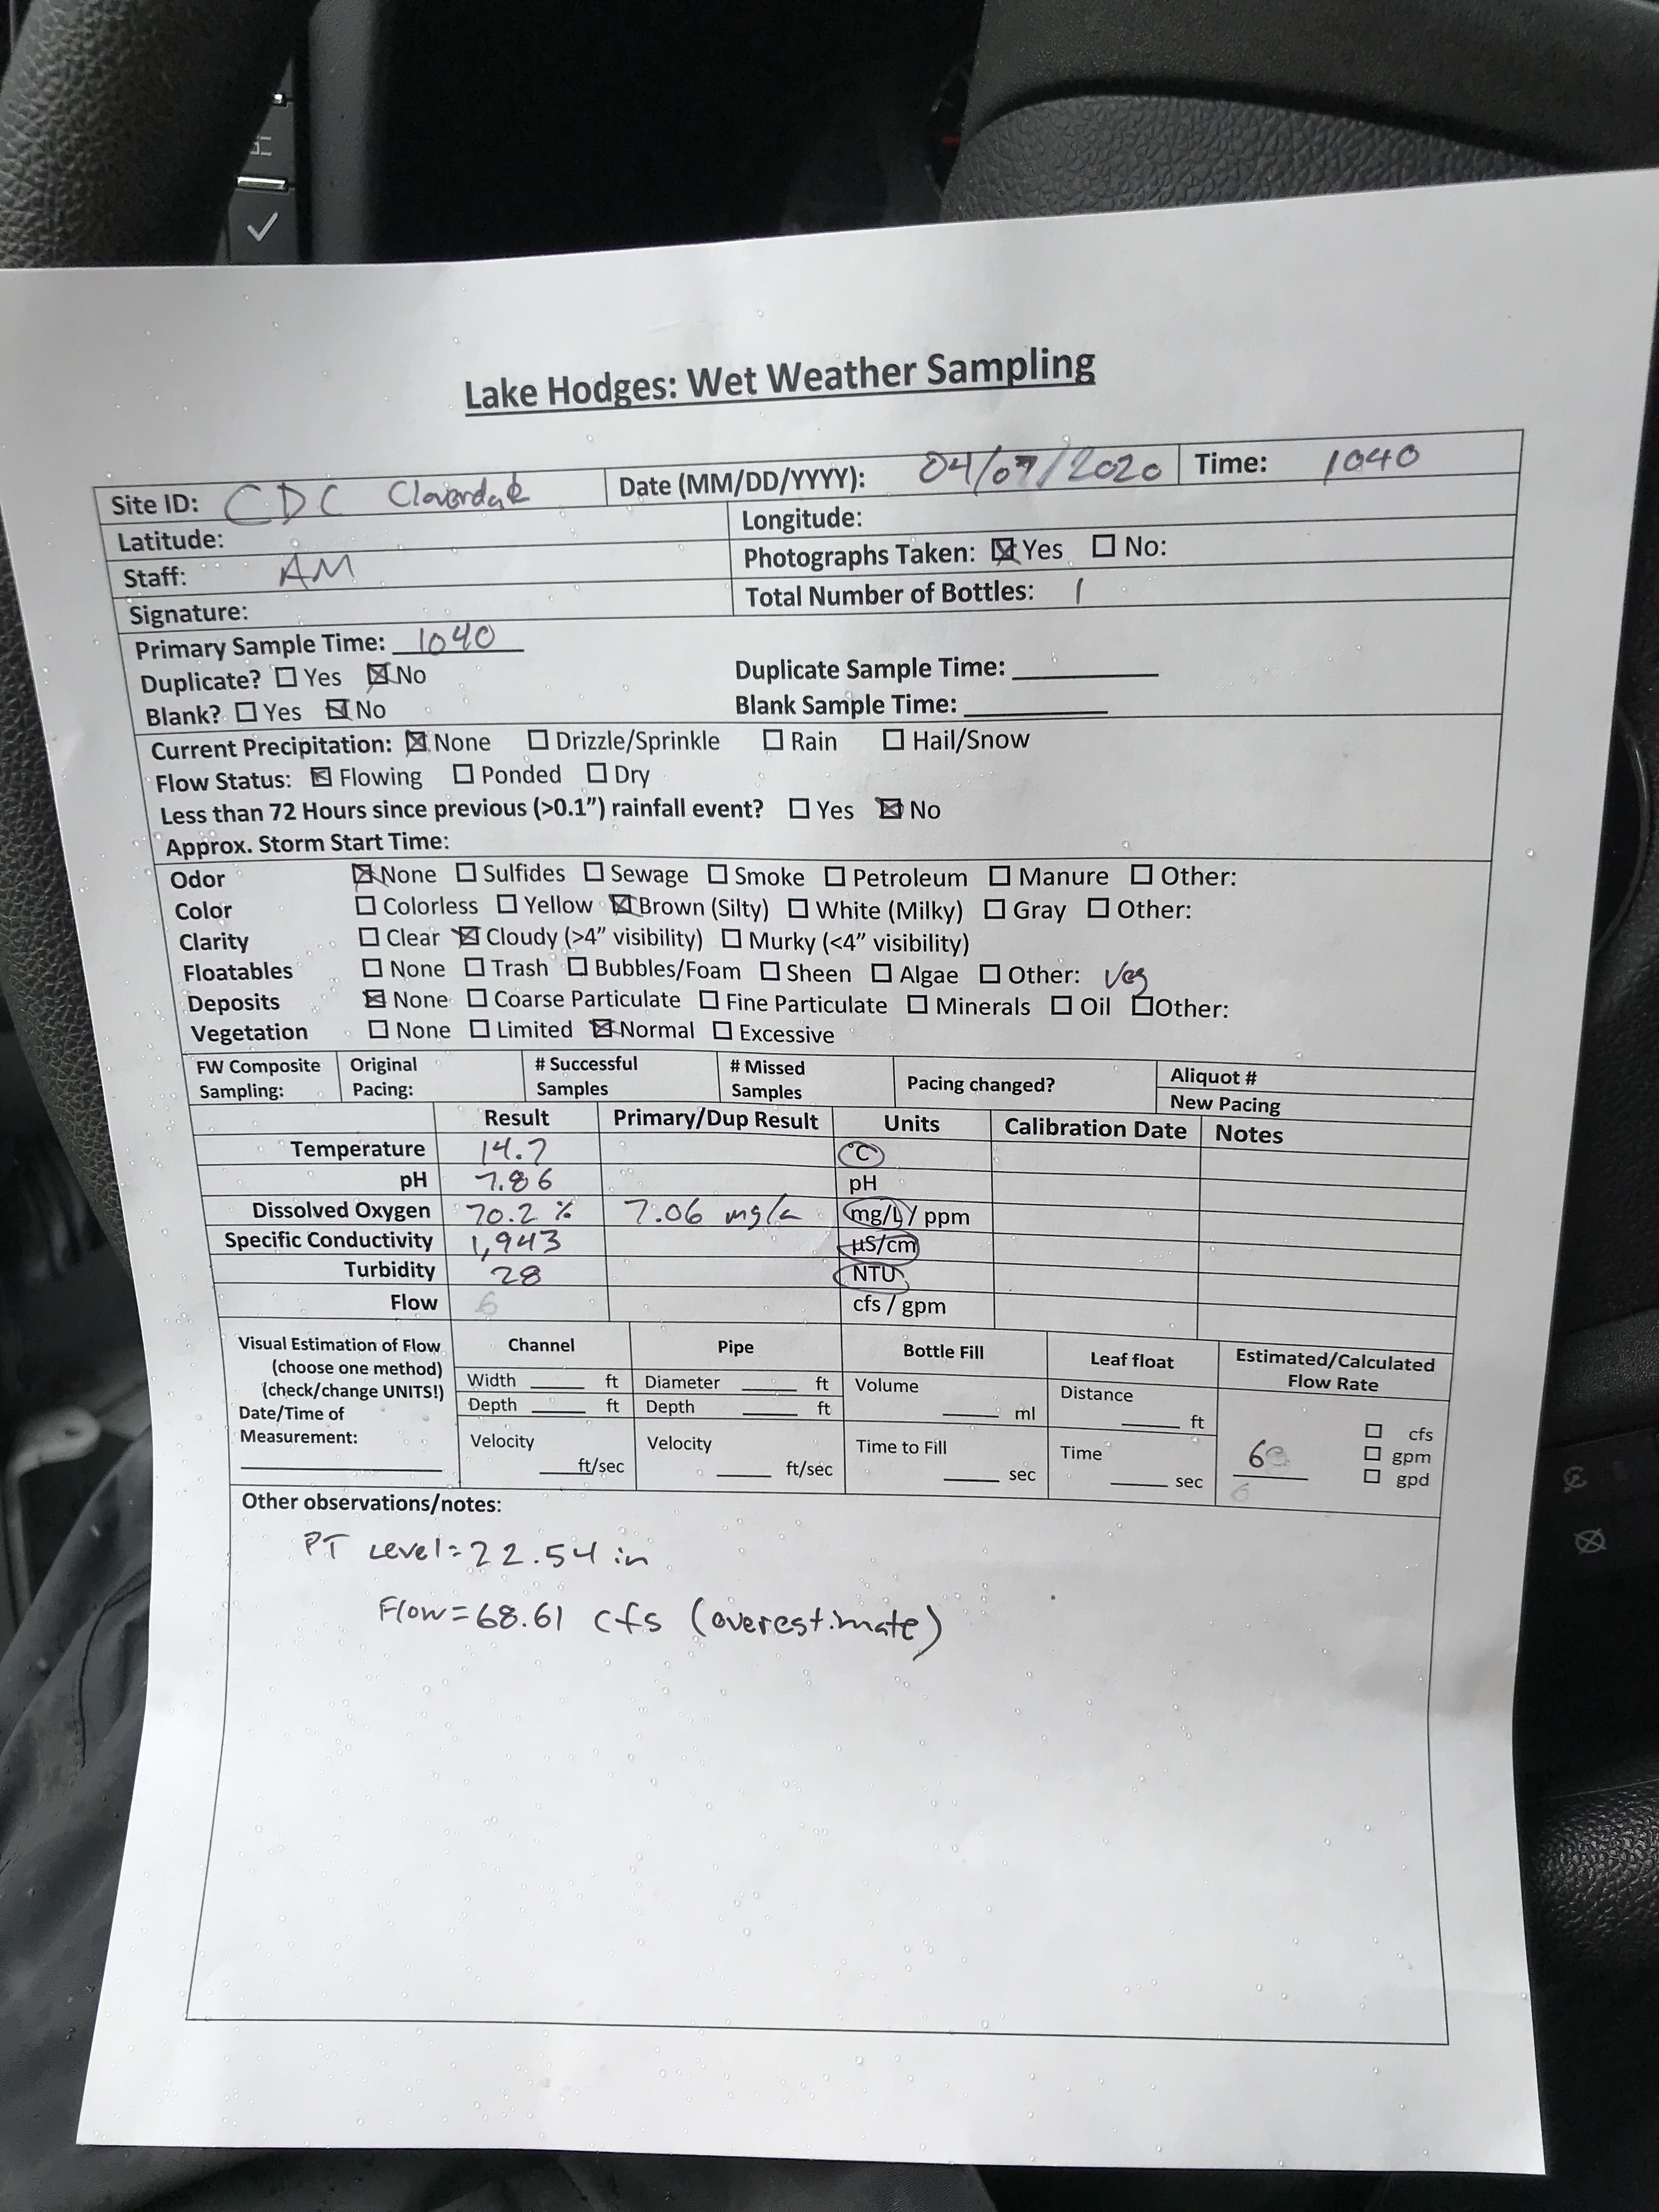 Lake Hodges: Wet Weather Sampling
Site ID: CDC Cloverdale Date (MM/DD/YYYY): 04/07/2020 Time: 1040
Latitude: Longitude:
Staff: AM Photographs Taken: ☒ Yes ☐ No:
Signature: Total Number of Bottles: 1
Primary Sample Time: 1040
Duplicate? ☐ Yes ☒ No Duplicate Sample Time: ______
Blank? ☐ Yes ☒ No Blank Sample Time: ______
Current Precipitation: ☒ None ☐ Drizzle/Sprinkle ☐ Rain ☐ Hail/Snow
Flow Status: ☒ Flowing ☐ Ponded ☐ Dry
Less than 72 Hours since previous (>0.1") rainfall event? ☐ Yes ☒ No
Approx. Storm Start Time:
Odor ☒ None ☐ Sulfides ☐ Sewage ☐ Smoke ☐ Petroleum ☐ Manure ☐ Other:
Color ☐ Colorless ☐ Yellow ☒ Brown (Silty) ☐ White (Milky) ☐ Gray ☐ Other:
Clarity ☐ Clear ☒ Cloudy (>4" visibility) ☐ Murky (<4" visibility)
Floatables ☐ None ☐ Trash ☐ Bubbles/Foam ☐ Sheen ☐ Algae ☐ Other: Veg
Deposits ☒ None ☐ Coarse Particulate ☐ Fine Particulate ☐ Minerals ☐ Oil ☐ Other:
Vegetation ☐ None ☐ Limited ☒ Normal ☐ Excessive
FW Composite Sampling: Original Pacing: # Successful Samples # Missed Samples Pacing changed? Aliquot #
New Pacing
Result Primary/Dup Result Units Calibration Date Notes
Temperature 14.7 °C
pH 7.86 pH
Dissolved Oxygen 70.2 % 7.06 mg/L mg/L / ppm
Specific Conductivity 1,943 µS/cm
Turbidity 28 NTU
Flow 6 cfs / gpm
Visual Estimation of Flow Channel Pipe Bottle Fill Leaf float Estimated/Calculated
(choose one method) Flow Rate
(check/change UNITS!) Width ____ ft Diameter ____ ft Volume Distance
Date/Time of Depth ____ ft Depth ____ ft ____ ml ____ ft ☐ cfs
Measurement: Velocity Velocity Time to Fill Time 68 ☐ gpm
______ ____ ft/sec ____ ft/sec ____ sec ____ sec 6 ☐ gpd
Other observations/notes:
PT Level = 22.54 in
Flow = 68.61 cfs (overestimate)